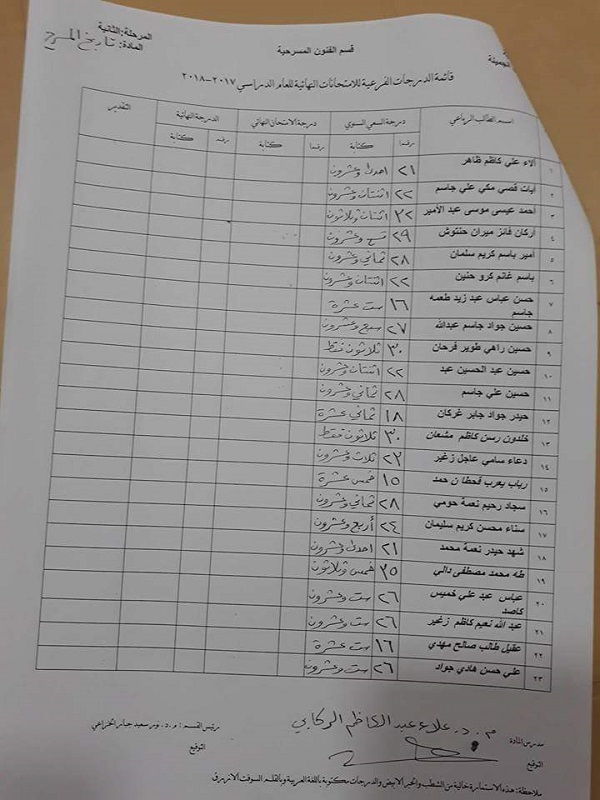 المرحلة: الثانية
المادة: تاريخ المسرح
قسم الفنون المسرحية
الجميلة
قائمة الدرجات الفرعية للامتحانات النهائية للعام الدراسي ٢٠١٧-٢٠١٨
ت اسم الطالب الرباعي درجة السعي السنوي درجة الامتحان النهائي الدرجة النهائية التقدير
رقما كتابة رقما كتابة رقما كتابة
١ آلاء علي كاظم ظاهر ٢١ احدى وعشرون
٢ آيات قصي مكي علي جاسم ٢٢ اثنتان وعشرون
٣ أحمد عيسى موسى عبد الأمير ٣٢ اثنتان وثلاثون
٤ أركان فائز ميران حنتوش ٢٩ تسع وعشرون
٥ أمير باسم كريم سلمان ٢٨ ثماني وعشرون
٦ باسم غانم كرو حنين ٢٢ اثنتان وعشرون
٧ حسن عباس عبد زيد طعمه جاسم ١٦ ست عشرة
٨ حسين جواد جاسم عبدالله ٢٧ سبع وعشرون
٩ حسين راهي طوير فرحان ٣٠ ثلاثون فقط
١٠ حسين عبد الحسين عبد ٢٢ اثنتان وعشرون
١١ حسين علي جاسم ٢٨ ثماني وعشرون
١٢ حيدر جواد جابر غركان ١٨ ثماني عشرة
١٣ خلدون رسن كاظم مشعان ٣٠ ثلاثون فقط
١٤ دعاء سامي عاجل زغير ٢٣ ثلاث وعشرون
١٥ رباب يعرب قحطان حمد ١٥ خمس عشرة
١٦ سجاد رحيم نعمة حومي ٢٨ ثماني وعشرون
١٧ سناء محسن كريم سليمان ٢٤ أربع وعشرون
١٨ شهد حيدر نعمة محمد ٢١ احدى وعشرون
١٩ طه محمد مصطفى دالي ٣٥ خمس وثلاثون
٢٠ عباس عبد علي خميس كاصد ٢٦ ست وعشرون
٢١ عبد الله نعيم كاظم زغير ٢٦ ست وعشرون
٢٢ عقيل طالب صالح مهدي ١٦ ست عشرة
٢٣ علي حسن هادي جواد ٢٦ ست وعشرون
مدرس المادة م.د. علاء عبد الكاظم الركابي
رئيس القسم: م.د. نور سعيد جبار الخزاعي
التوقيع
التوقيع
ملاحظة: هذه الاستمارة خالية من الشطب والحبر الابيض والدرجات مكتوبة باللغة العربية وبالقلم السوفت الازرق